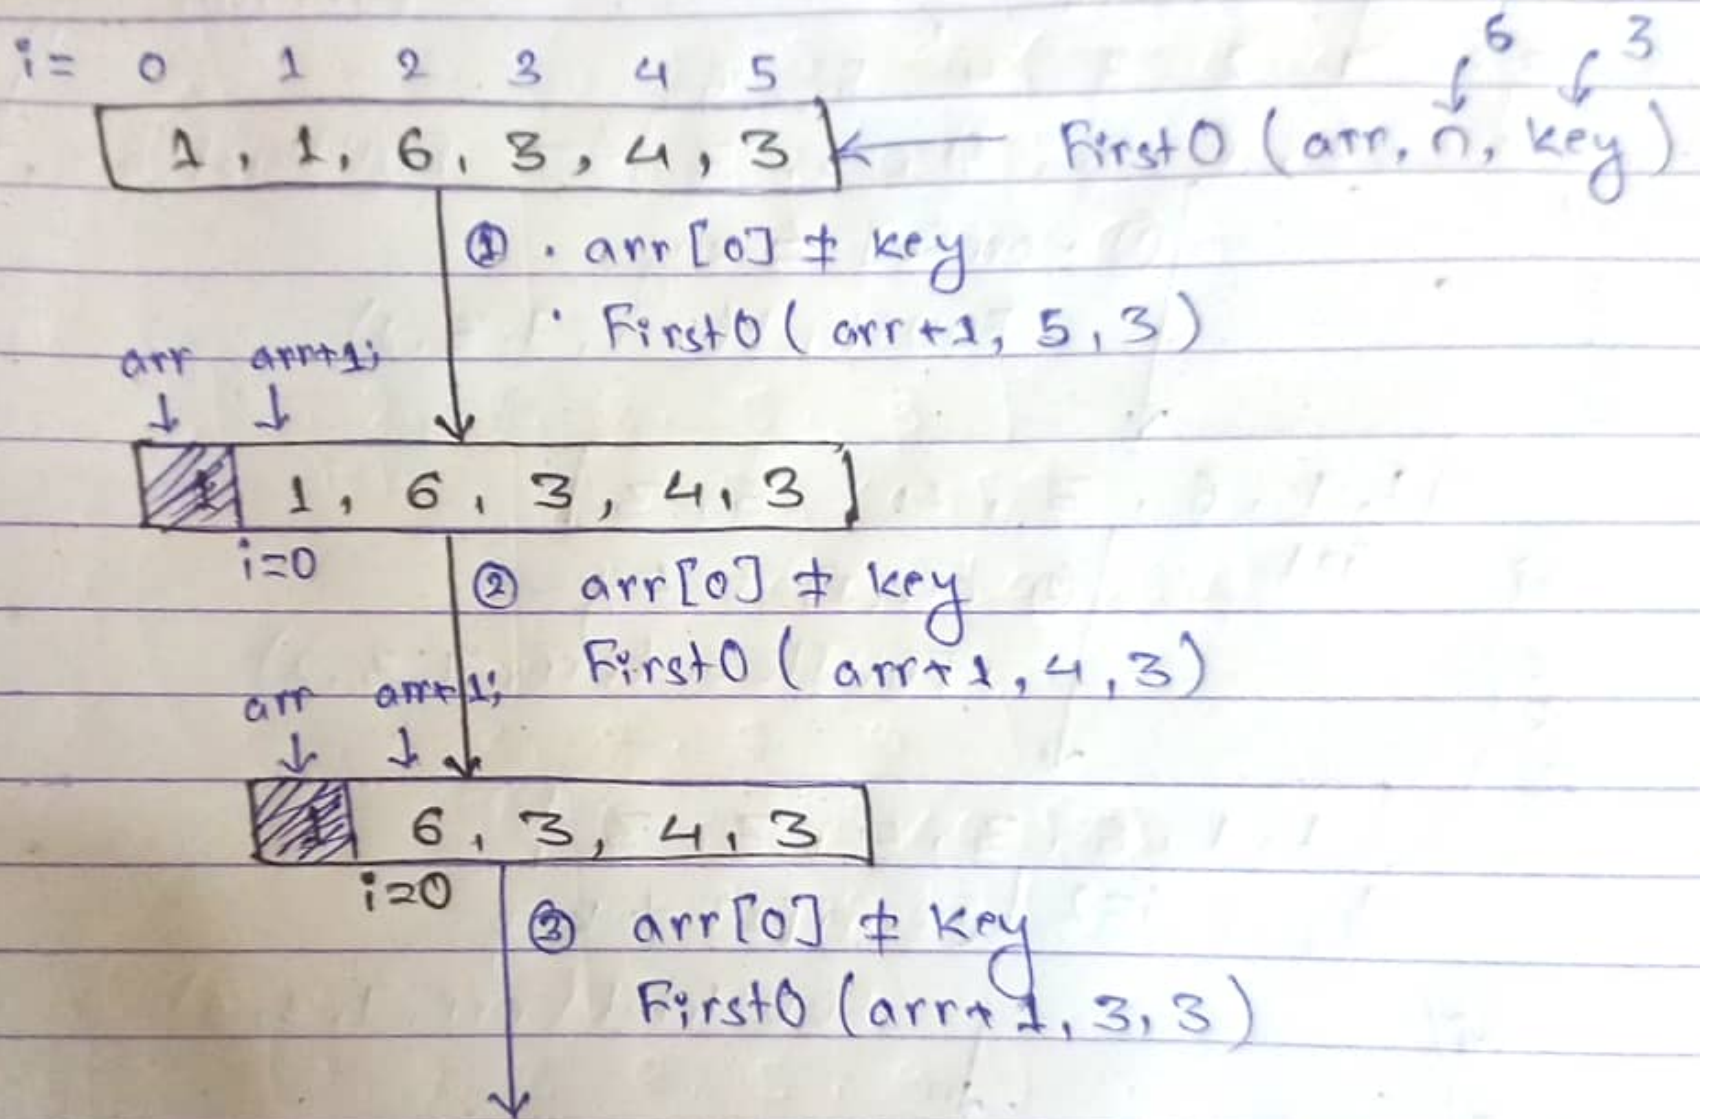 i= 0 1 2 3 4 5
6 3
1, 1, 6, 3, 4, 3 ← FirstO (arr, n, key)
① . arr[0] ≠ key
. FirstO ( arr+1, 5, 3)
arr arr+1;
1 1, 6, 3, 4, 3
i=0
② arr[0] ≠ key
FirstO ( arr+1, 4, 3)
arr arr+1;
1 6, 3, 4, 3
i=0
③ arr[0] ≠ key
FirstO (arr+1, 3, 3)